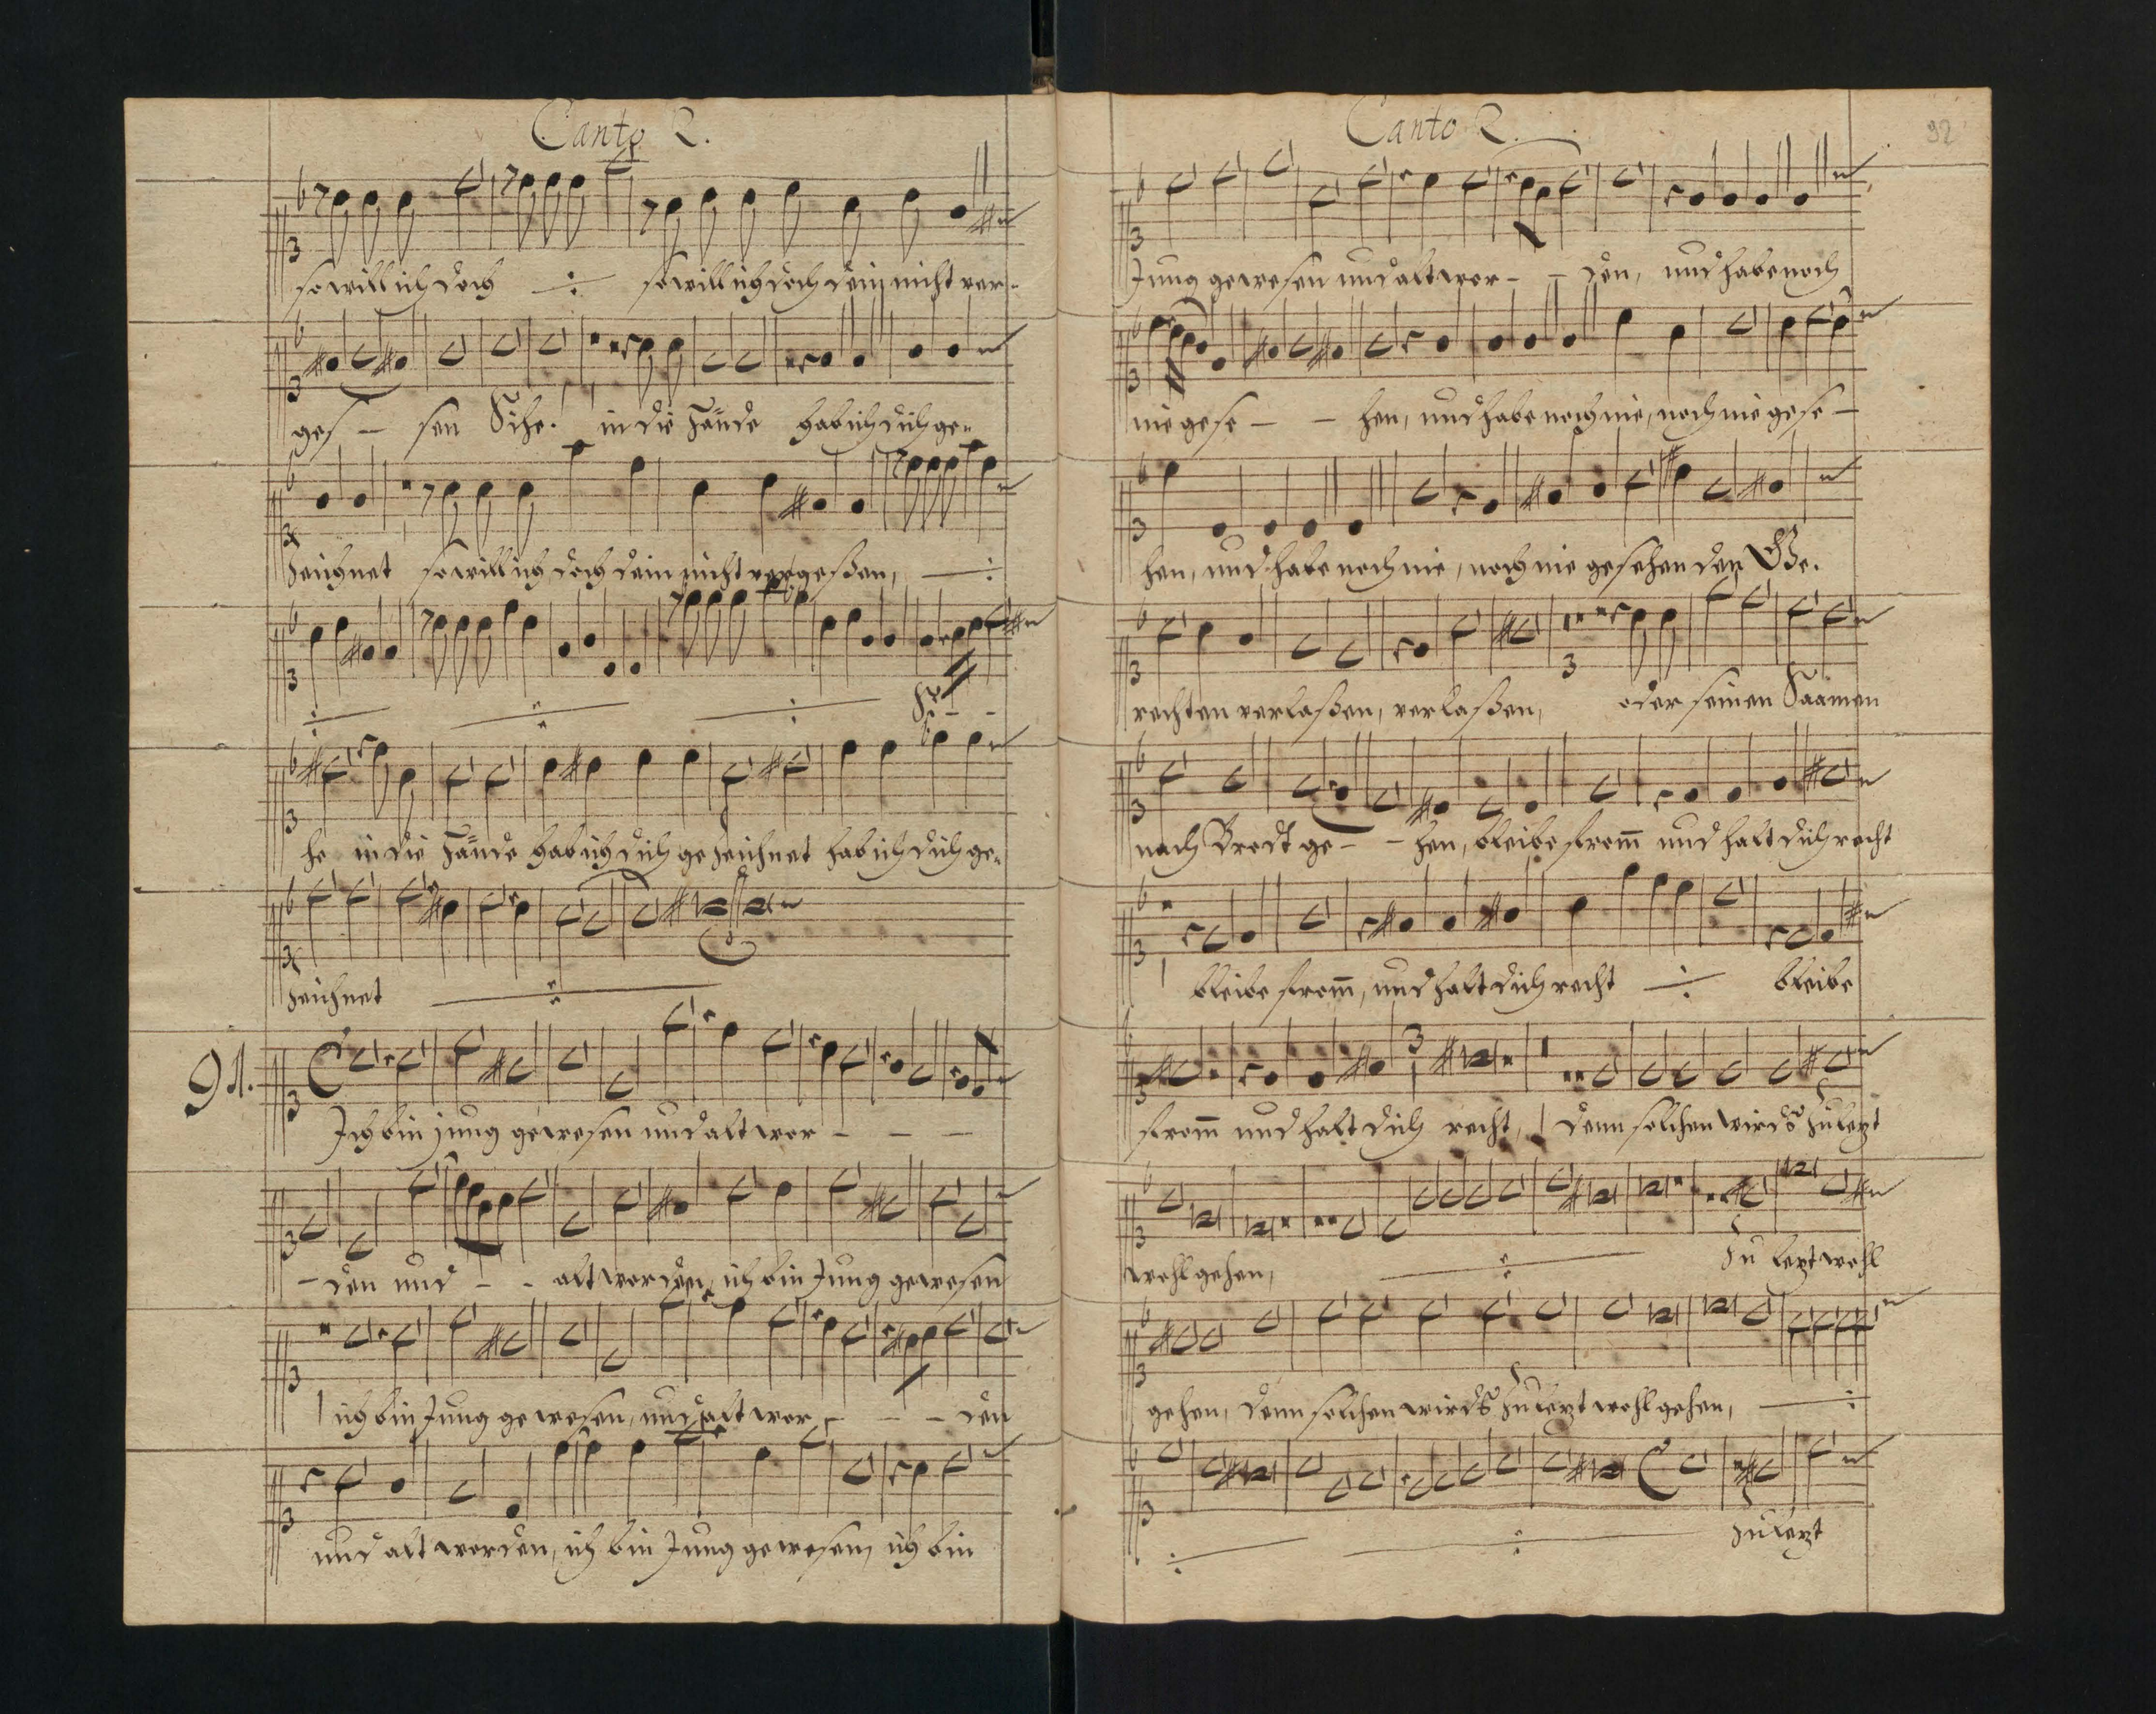 Canto 2.
so will ich doch ÷ so will ich doch dein nicht ver-
ges - sen Sihe. in die Hände hab ich dich ge-
zeichnet so will ich doch dein nicht vergeßen, ÷
÷ ÷ ÷ Si - -
he in die Hände hab ich dich gezeichnet hab ich dich ge-
zeichnet ÷
91.
Ich bin jung gewesen und alt wor - - -
- den und - - alt worden, ich bin Jung gewesen
ich bin Jung gewesen, und alt wor - - - den
und alt worden, ich bin Jung gewesen, ich bin
Canto 2.
92
Jung gewesen und alt wor - - den, und habe noch
nie gese - - hen, und habe noch nie, noch nie gese -
hen, und habe noch nie, noch nie gesehen den Ge-
rechten verlaßen, verlaßen, oder seinen Saamen
nach Brodt ge - - hen, bleibe from̅ und halt dich recht
bleibe from̅, und halt dich recht ÷ bleibe
from̅ und halt dich recht, denn solchen wirds zu lezt
wohl gehen, ÷ zu lezt wohl
gehen, denn solchen wirds zu lezt wohl gehen, ÷
÷ ÷ zu lezt